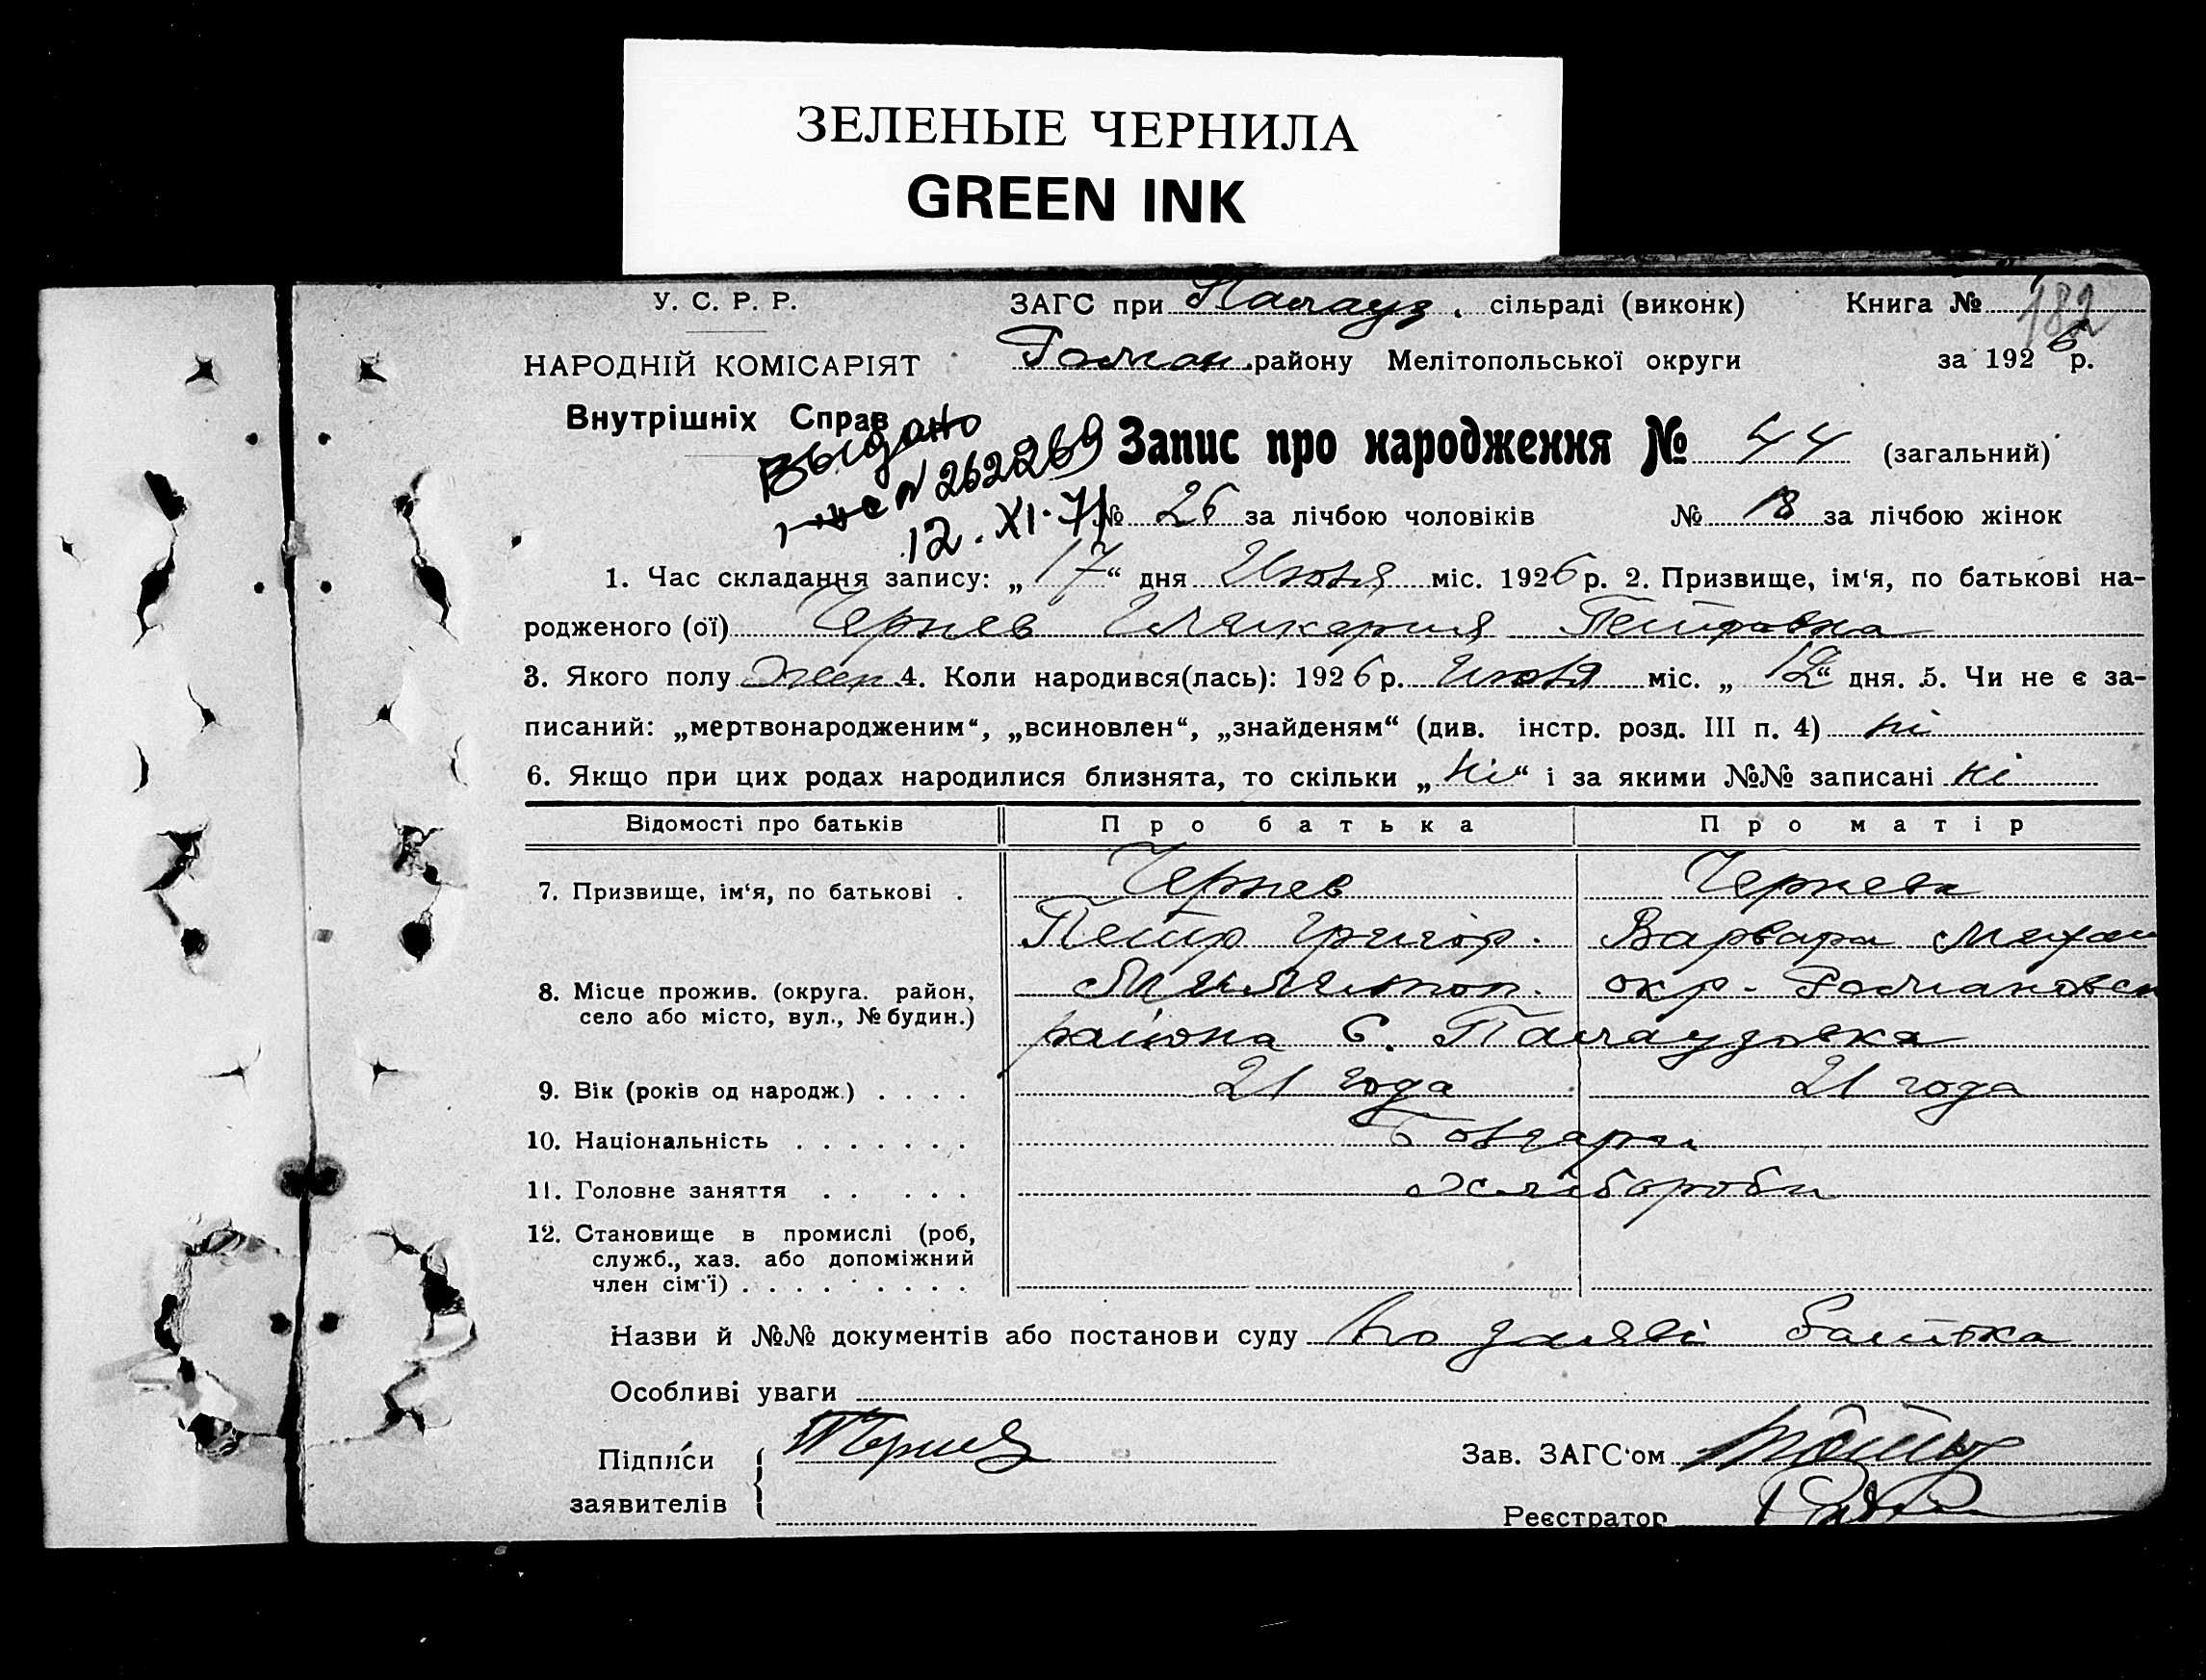 ЗЕЛЕНЫЕ ЧЕРНИЛА
GREEN INK
У. С. Р. Р. ЗАГС при Палауз. сільраді (виконк) Книга № 182
НАРОДНІЙ КОМІСАРІЯТ Роман. району Мелітопольської округи за 1926 р.
Внутрішніх Справ
Выдано
№ 262269
12. XI. 71
Запис про народження № 44 (загальний)
№ 26 за лічбою чоловіків № 18 за лічбою жінок
1. Час складання запису: „17“ дня Июля міс. 1926 р. 2. Призвище, ім‘я, по батькові на-
родженого (ої) Чернев Гликерия Петровна
3. Якого полу жен 4. Коли народився(лась): 1926 р. Июля міс. „12“ дня. 5. Чи не є за-
писаний: „мертвонародженим“, „всиновлен“, „знайденям“ (див. інстр. розд. III п. 4) ні
6. Якщо при цих родах народилися близнята, то скільки „ні“ і за якими №№ записані ні
Відомості про батьків Про батька Про матір
7. Призвище, ім‘я, по батькові . Чернев Чернева
Петир Григор. Варвара Михаи
8. Місце прожив. (округа. район, село або місто, вул., № будин.) Милитоп. окр. Романовск
района с. Палаузовка
9. Вік (років од народж.) . . . . 21 года 21 года
10. Національність . . . . . . . Болгари
11. Головне заняття . . . . . Хлібороби
12. Становище в промислі (роб,
служб., хаз. або допоміжний
член сім‘ї) . . . . . . . .
Назви й №№ документів або постанови суду По заяві батька
Особливі уваги
Підписи
заявителів
ПЧернев
Зав. ЗАГС‘ом
Реєстратор